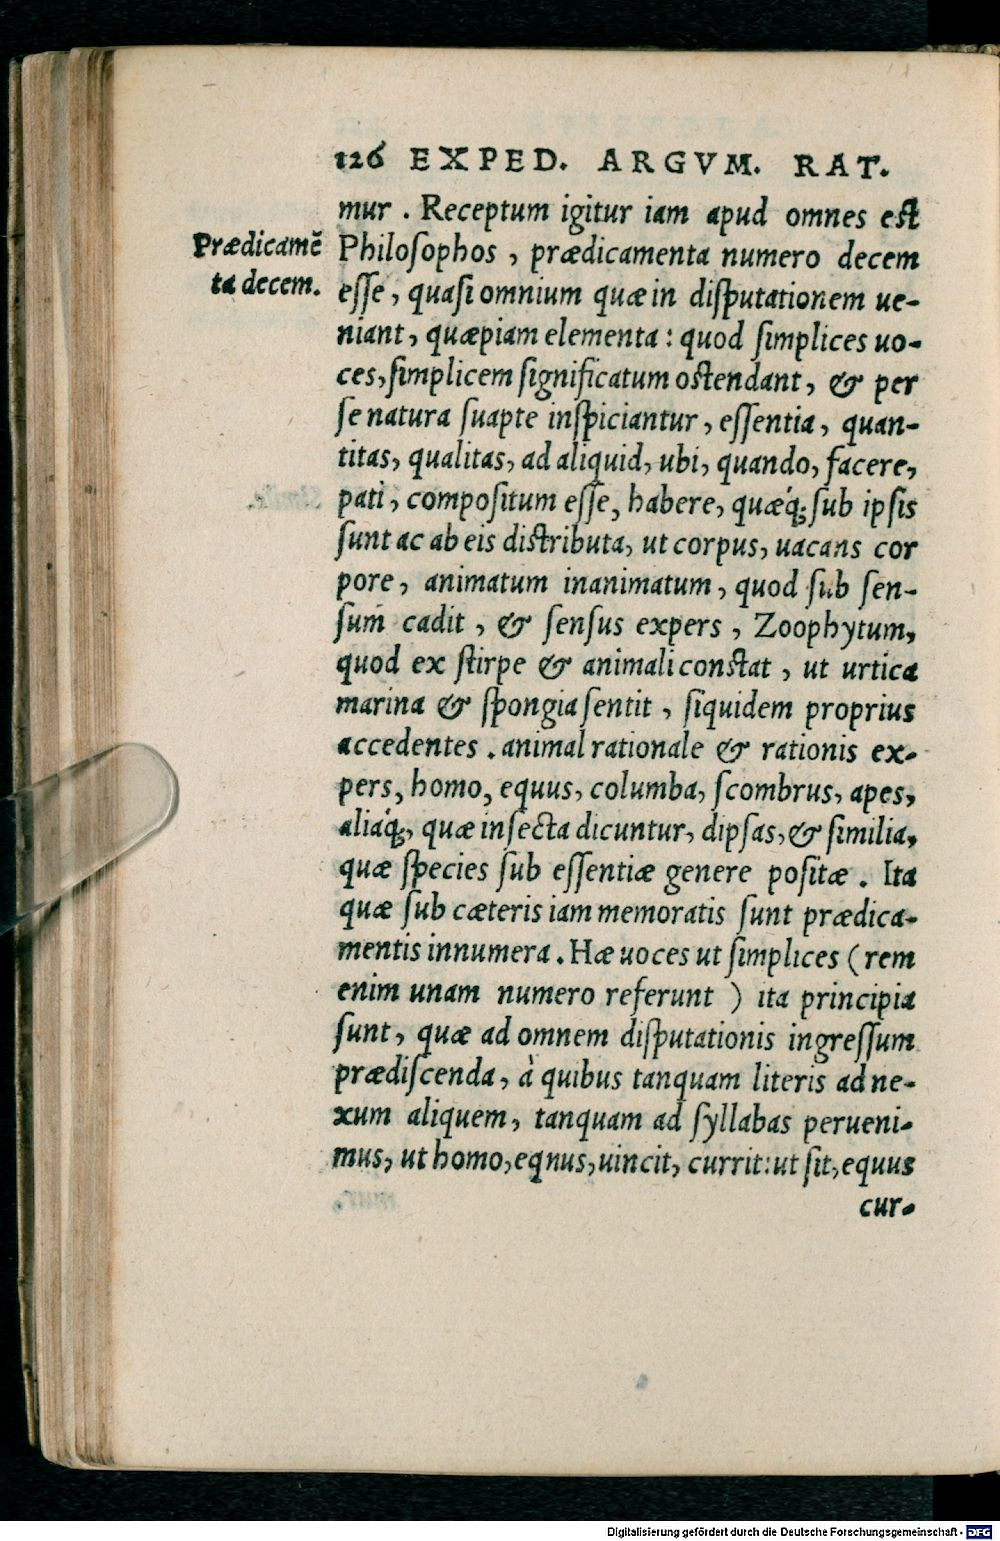 126 EXPED. ARGVM. RAT.
mur . Receptum igitur iam apud omnes est
Prædicamẽ
ta decem.
Philoſophos , prædicamenta numero decem
eſſe , quaſi omnium quæ in diſputationem ue-
niant , quæpiam elementa : quod ſimplices uo-
ces, ſimplicem ſignificatum oſtendant , & per
ſe natura ſuapte inſpiciantur , eſſentia , quan-
titas, qualitas, ad aliquid, ubi, quando, facere,
pati , compoſitum eſſe, habere, quæq́; ſub ipſis
ſunt ac ab eis diſtributa, ut corpus, uacans cor
pore , animatum inanimatum , quod ſub ſen-
ſum cadit , & ſenſus expers , Zoophytum,
quod ex ſtirpe & animali conſtat , ut urtica
marina & ſpongia ſentit , ſiquidem proprius
accedentes . animal rationale & rationis ex-
pers, homo, equus, columba, ſcombrus, apes,
aliaq́;, quæ inſecta dicuntur, dipſas, & ſimilia,
quæ ſpecies ſub eſſentiæ genere poſitæ . Ita
quæ ſub cæteris iam memoratis ſunt prædica-
mentis innumera . Hæ uoces ut ſimplices ( rem
enim unam numero referunt ) ita principia
ſunt , quæ ad omnem diſputationis ingreſſum
prædiſcenda , à quibus tanquam literis ad ne-
xum aliquem , tanquam ad ſyllabas perueni-
mus, ut homo, eqnus, uincit, currit: ut ſit, equus
cur-
Digitalisierung gefördert durch die Deutsche Forschungsgemeinschaft - DFG